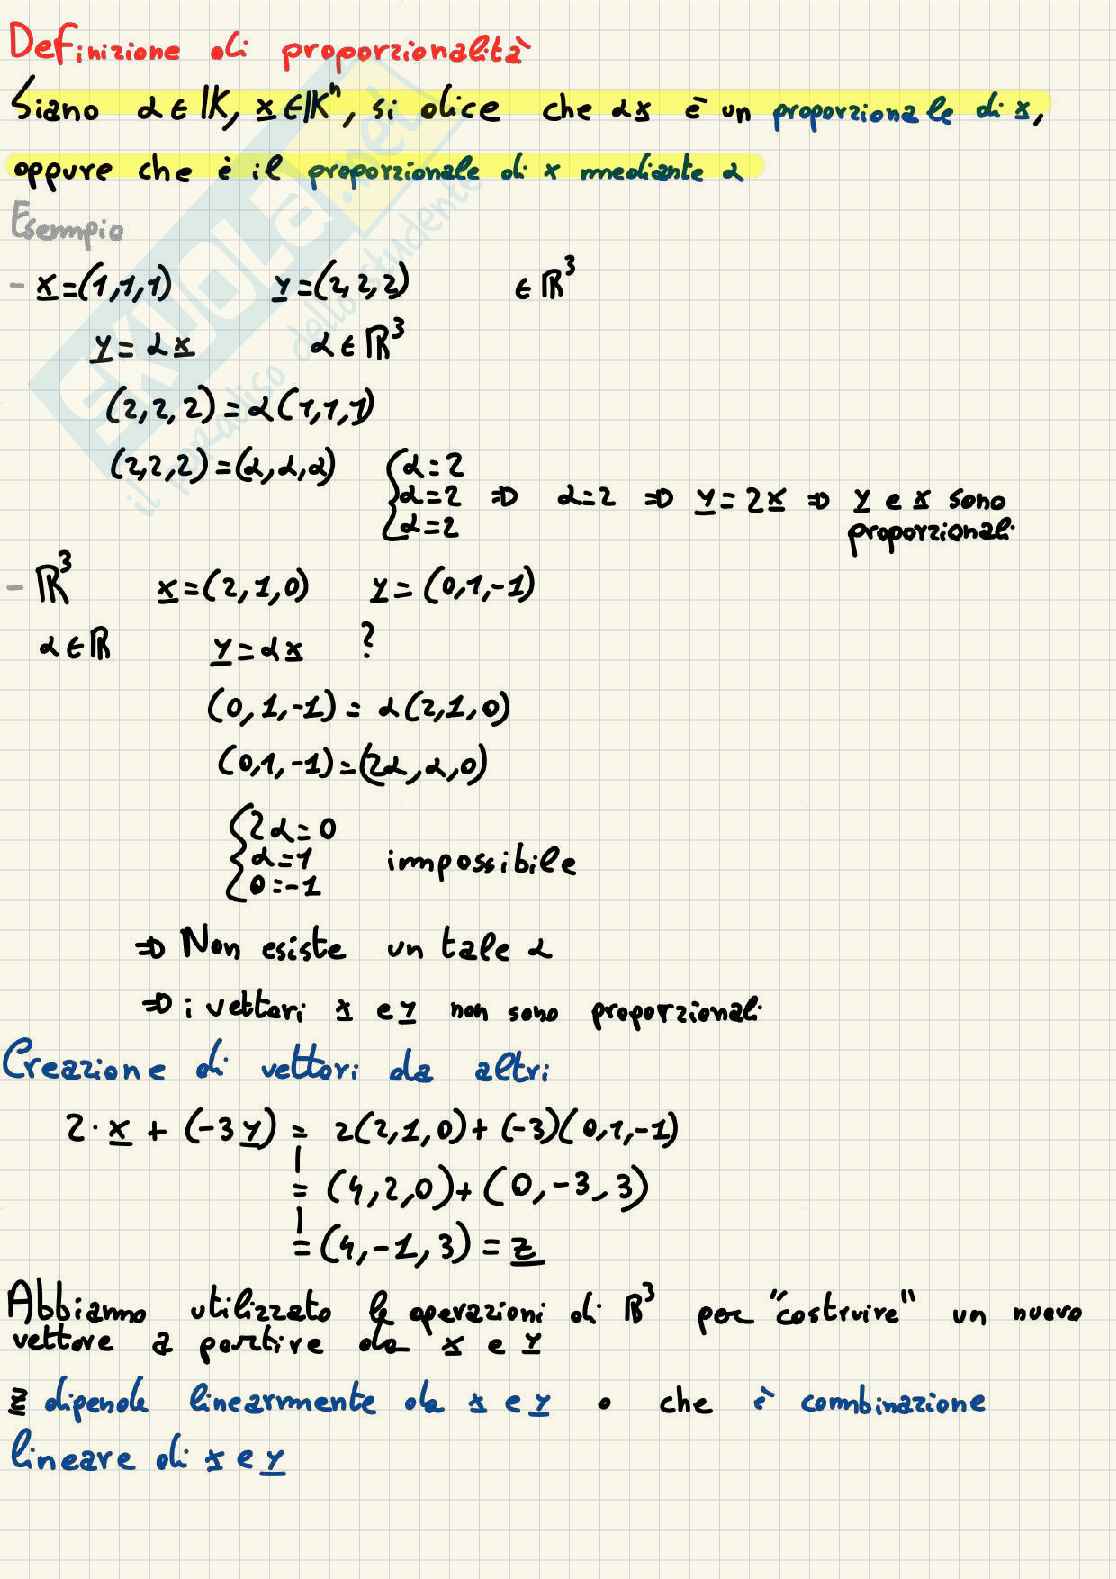 Definizione di proporzionalità
Siano α ∈ K, x ∈ Kⁿ, si dice che αx è un proporzionale di x,
oppure che è il proporzionale di x mediante α
Esempio
- x=(1,1,1) y=(2,2,2) ∈ ℝ³
y = αx α ∈ ℝ³
(2,2,2) = α(1,1,1)
(2,2,2)=(α,α,α) { α=2
α=2 ⇒ α=2 ⇒ y=2x ⇒ y e x sono
α=2 proporzionali
- ℝ³ x=(2,1,0) y=(0,1,-1)
α∈ℝ y=αx ?
(0,1,-1) = α(2,1,0)
(0,1,-1)=(2α,α,0)
{ 2α=0
α=1 impossibile
0=-1
⇒ Non esiste un tale α
⇒ i vettori x e y non sono proporzionali
Creazione di vettori da altri
2·x + (-3y) = 2(2,1,0)+(-3)(0,1,-1)
= (4,2,0)+(0,-3,3)
=(4,-1,3)=z
Abbiamo utilizzato le operazioni di ℝ³ per "costruire" un nuovo
vettore a partire da x e y
z dipende linearmente da x e y o che è combinazione
lineare di x e y
SKUOLA.net
il paradiso dello studente